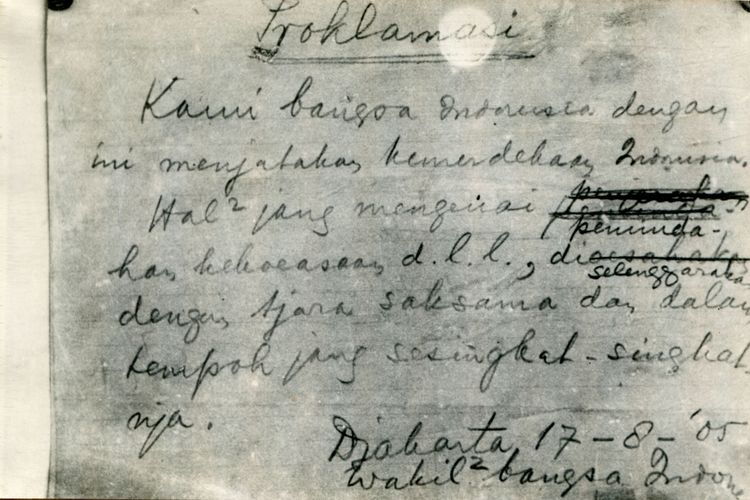 Proklamasi
Kami bangsa Indonesia dengan
ini menjatakan kemerdekaan Indonesia.
Hal² jang mengenai
peminda-
han kekoeasaan d.l.l., dioesahakan
selenggaraka
dengan tjara saksama dan dalam
tempoh jang sesingkat-singkat
nja.
Djakarta, 17-8-'05
Wakil² bangsa Indon